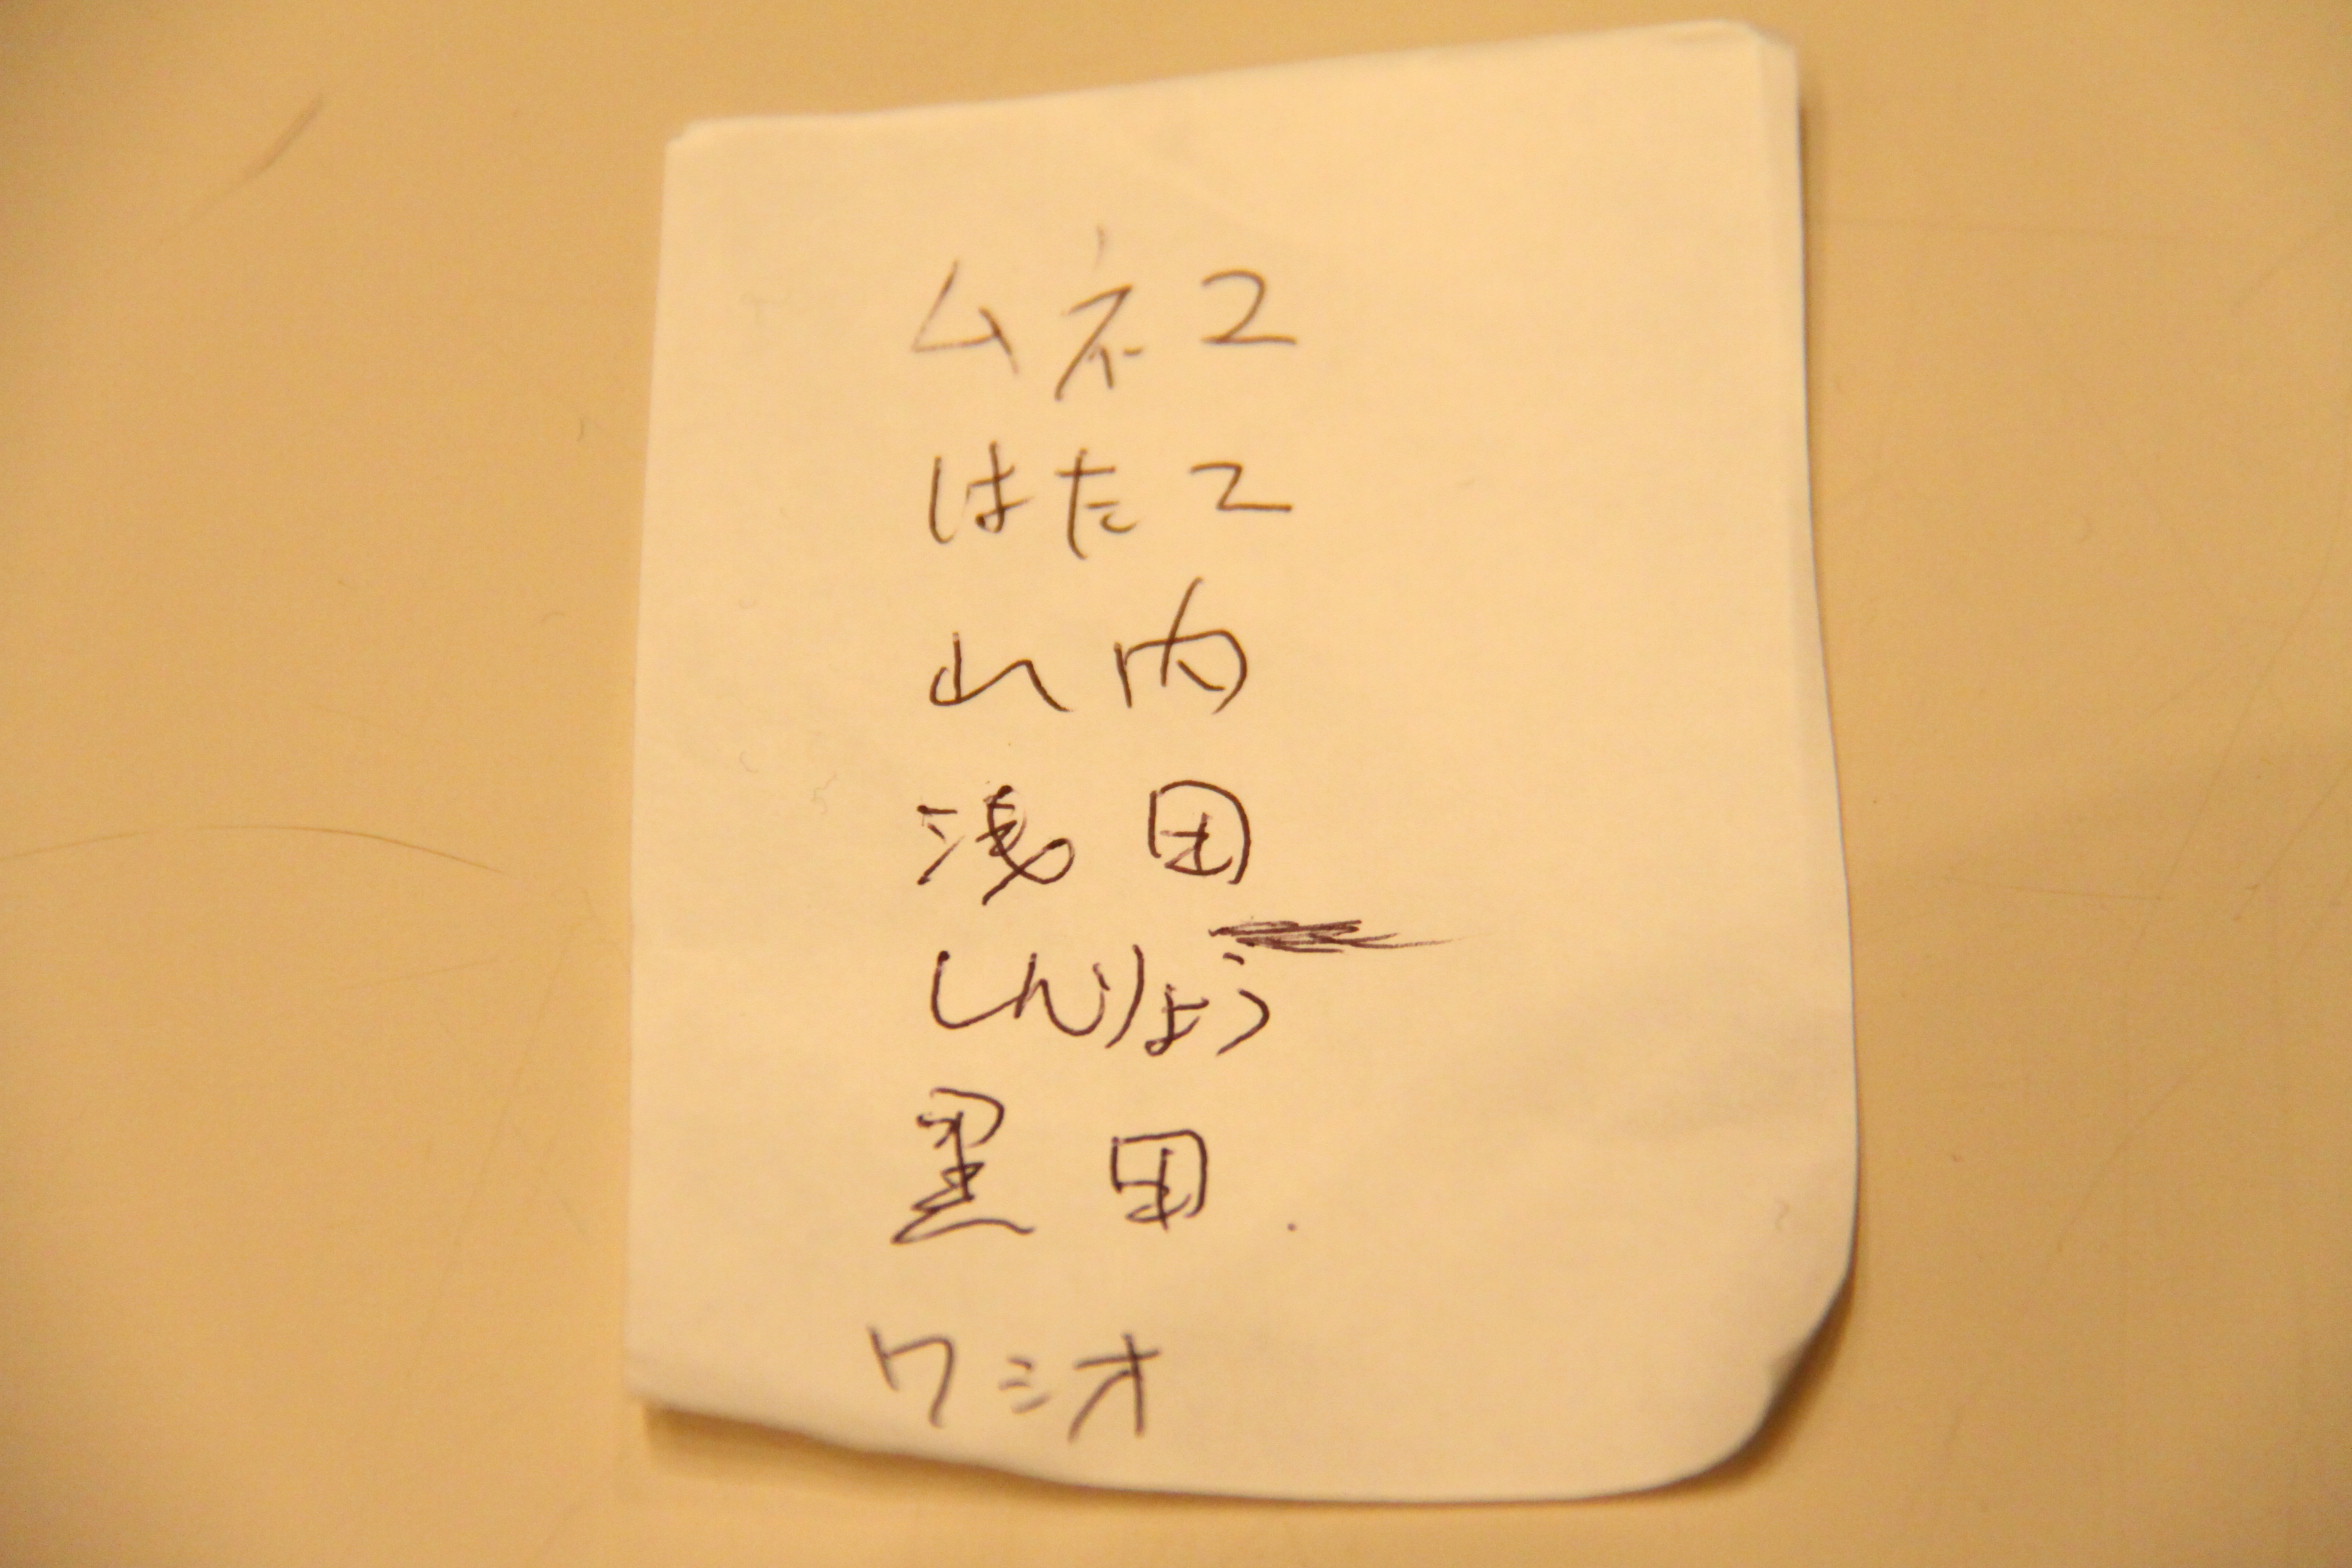 ムネユ
はたユ
山内
浅田
しんりょう
黒田.
ワシオ